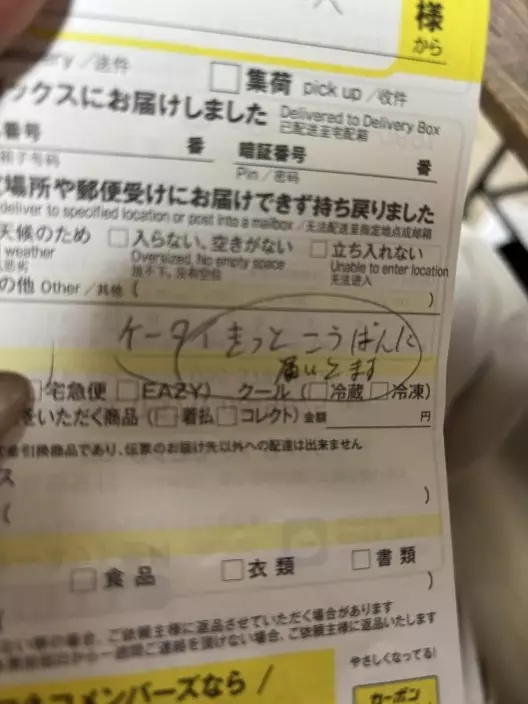 様
から
/送件
集荷 pick up /收件
ックスにお届けしました Delivered to Delivery Box
已配送至宅配箱
番号 番 暗証番号 番
Pin /密码
場所や郵便受けにお届けできず持ち戻りました
deliver to specified location or post into a mailbox /无法配送至指定地点或邮箱
天候のため 入らない、空きがない 立ち入れない
weather Oversized, No empty space Unable to enter location
放不下、没有空位 无法进入
の他 Other /其他 ( )
ケータイ きっと こうばんに
届いてます
宅急便 EAZY) クール ( 冷蔵 冷凍)
をいただく商品 ( 着払 コレクト) 金額 円
引換商品であり、伝票のお届け先以外への配達は出来ません
ス
)
(
食品 衣類 書類
)
ご依頼主様に返品させていただく場合があります
一週間ご連絡を頂けない場合、ご依頼主様に返品いたします
やさしくなってる!
ネコメンバーズなら /
カーボン